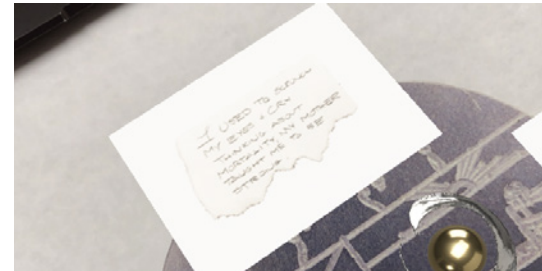 I USED TO SCRUNCH
MY EYES & CRY
THINKING ABOUT
MORTALITY MY MOTHER
TAUGHT ME TO BE
STRONG